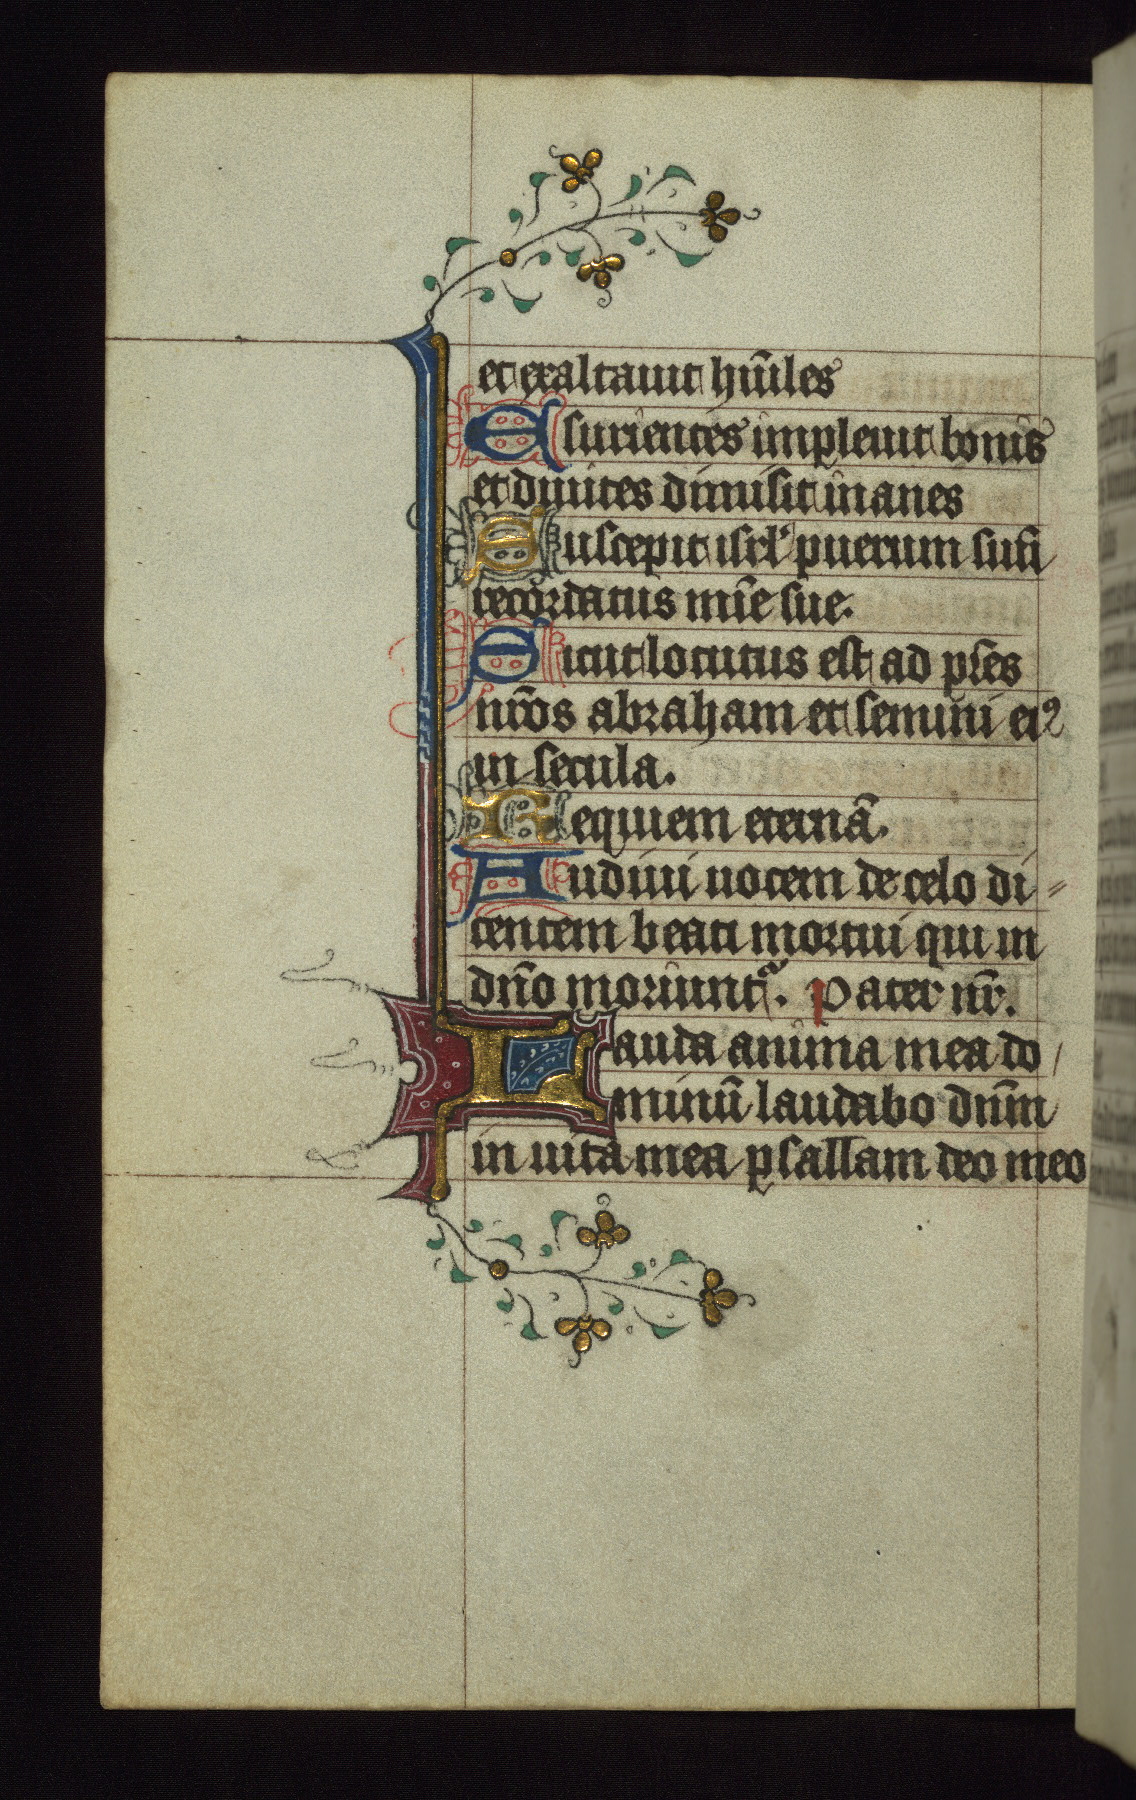 et exaltauit hūiles
Esurientes impleuit bonis
et diuites dimisit inanes
Suscepit isrl' puerum suū
recordatus mīe sue.
Sicut locutus est ad pr̄es
nr̄os abraham et semini eiꝰ
in secula.
Requiem eternā.
Audiui uocem de celo di
centem beati mortui qui in
dn̄o moriunt᷑. Pater nr̄.
Lauda anima mea do
minū laudabo dn̄m
in uita mea psallam deo meo